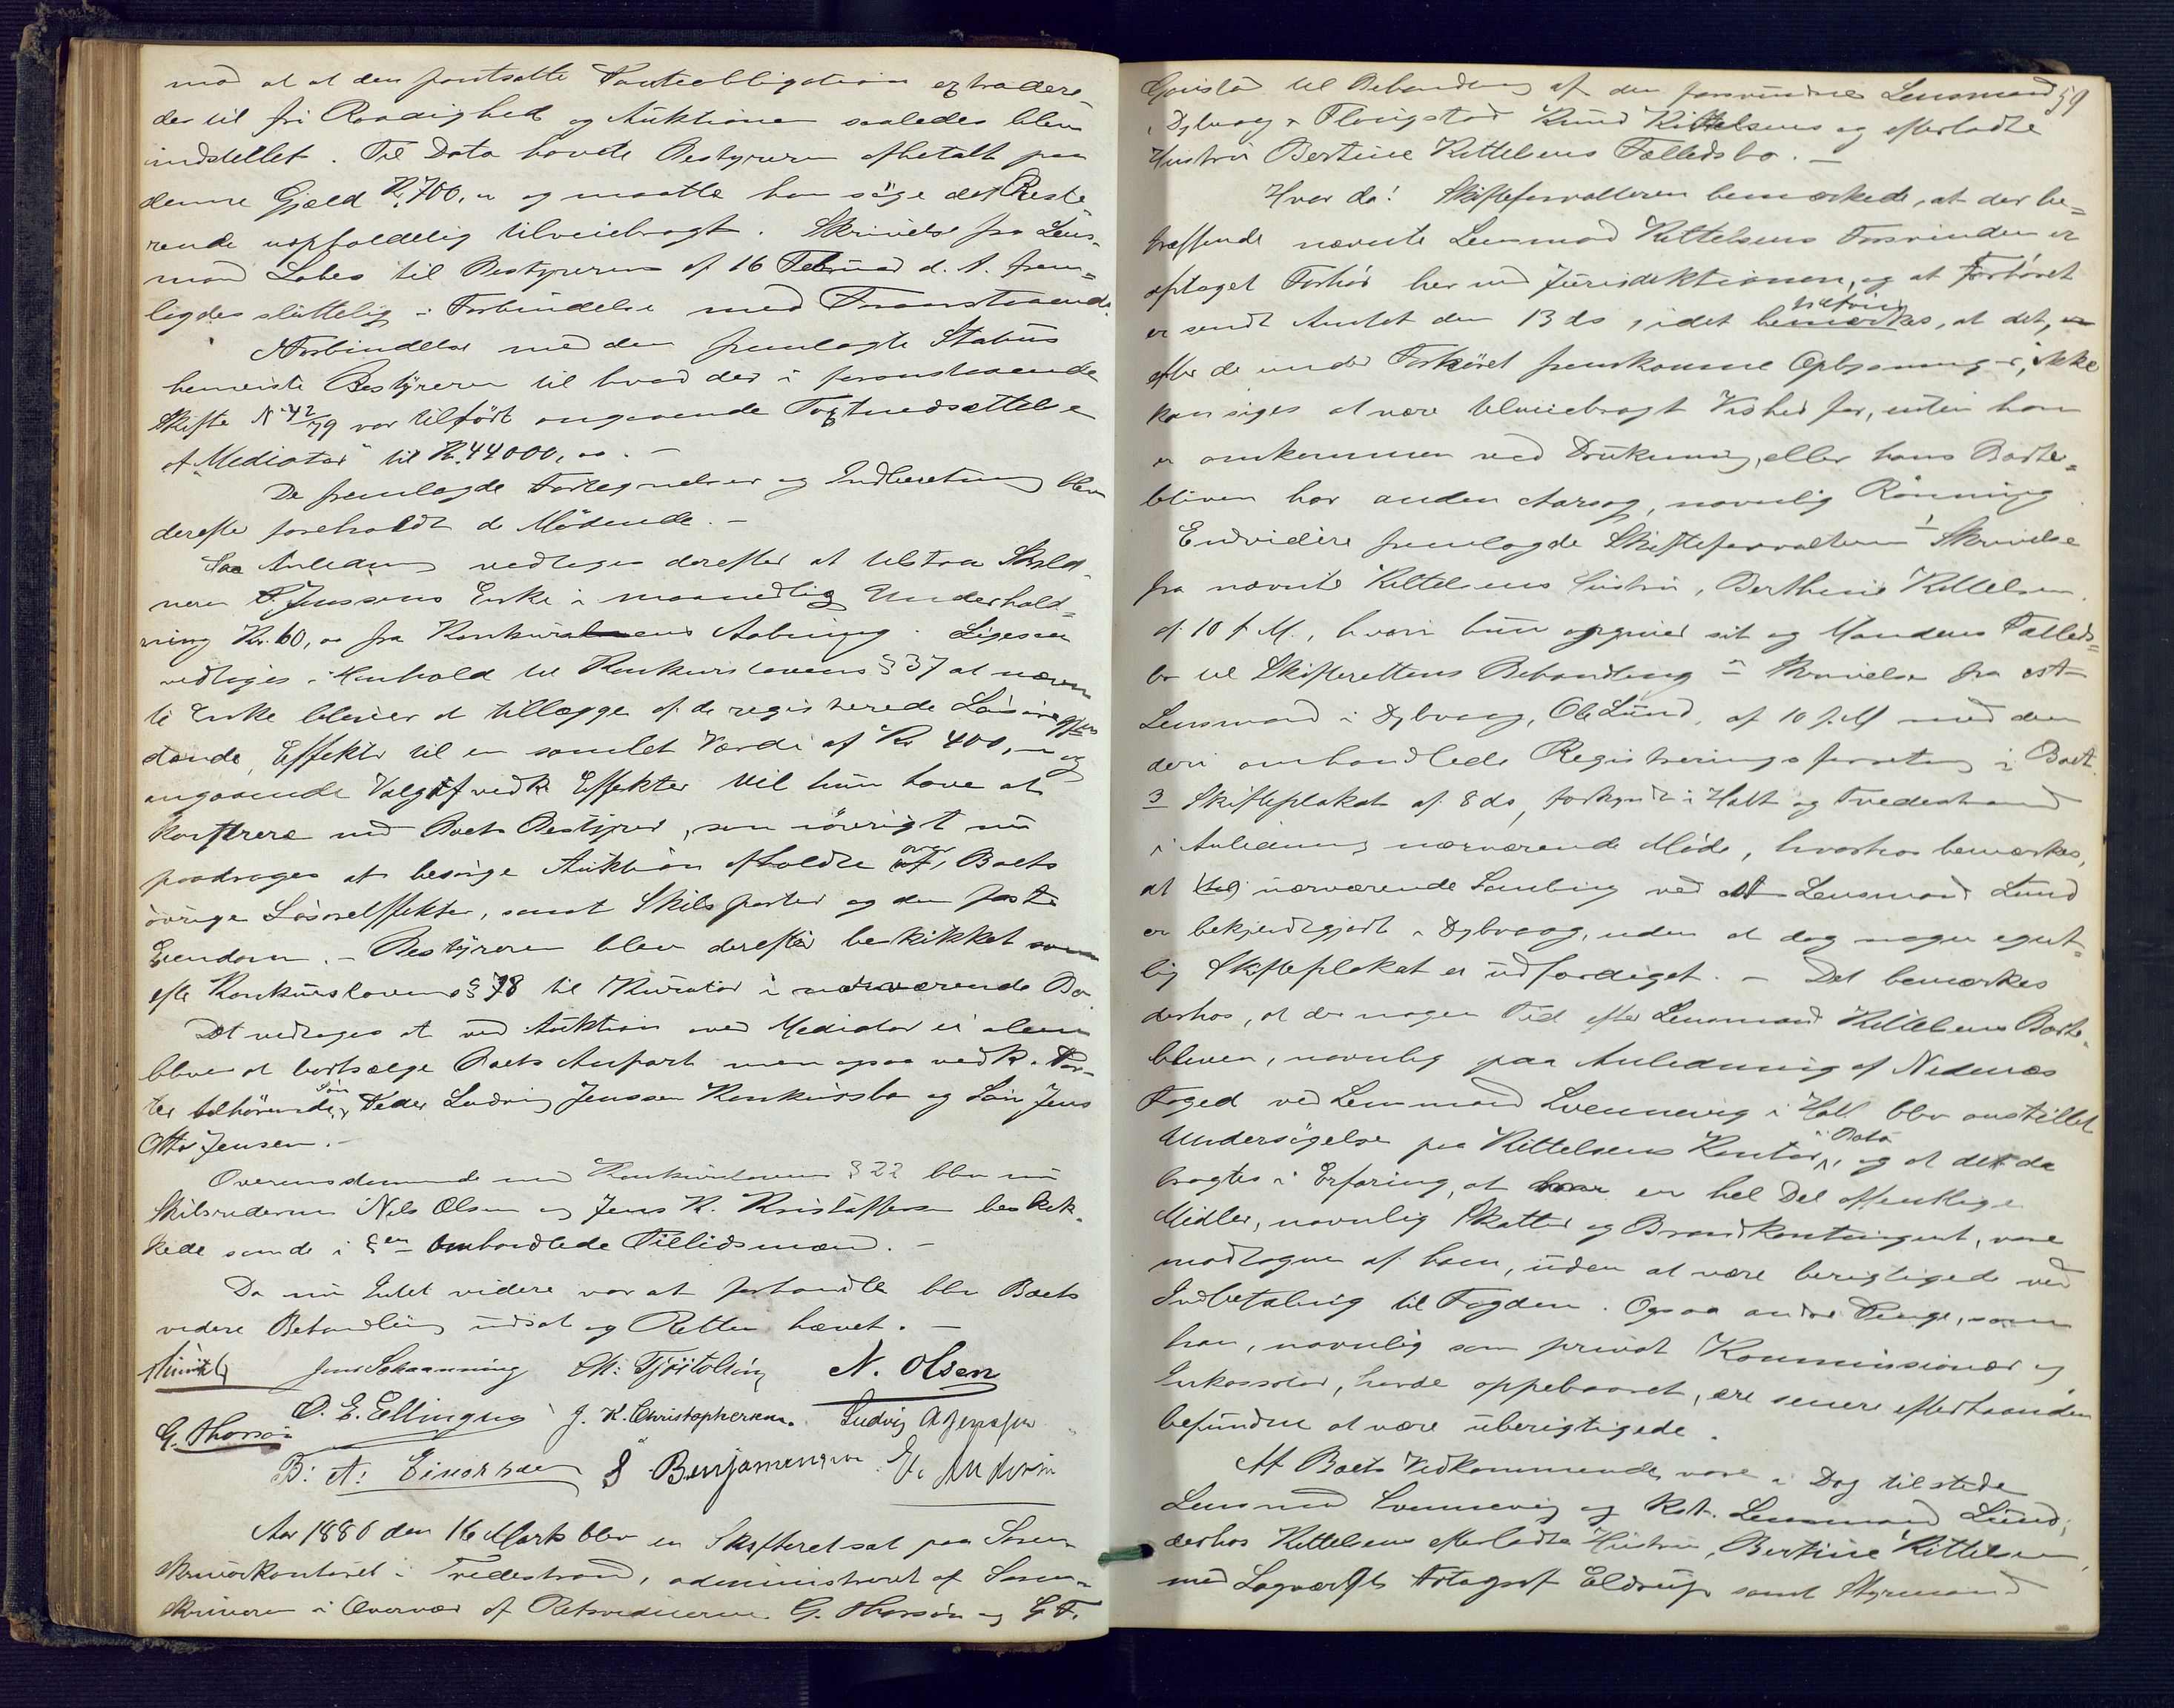 mod at at den pantsatte Panteobligation extradere
des til fri Raadighed og Auktionen saaledes blev
indstillet. Til Dato havde Bestyreren afbetalt paa
denne Gjæld Kr. 700, " og maatte han søge det Reste-
rende uopholdelig tilveiebragt. Skrivelse fra Lens-
mand Lobes til Bestyreren af 16 Februar d. A. frem-
lagdes sluttelig i Forbindelse med Foranstaaende.
I Forbindelse med den fremlagte Status
henviste Bestyreren til hvad der i foranstaaende
Skifte No 42/79 var tilført angaaende Taxtnedsættelse
af "Mediator" til Kr. 44000, oo. –
De fremlagde Fortegnelser og Indberetning blev
derefter foreholdt de Mødende. –
Paa Anledning vedtoges derefter at tilstaa Skyld-
neren P. Jenssens Enke i maanedlig Underhold-
ning Kr. 60, oo fra Konkursens Aabning. Ligesaa
vedtoges i Henhold til Konkurslovens § 37 at nævn
te Enke bliver at tillægge af de registrerede Løsøregjen
stande, Effekter til en samlet Værdi af Kr 400, – og
angaaende Valg af vedk. Effekter vil hun have at
konferere med Boets Bestyrer, som iøvrigt nu
paadroges at besørge Auktion afholdte over Boets
øvrige Løsøreffekter, samt Skibsparter og den faste
Eiendom. – Bestyreren blev derefter beskikket som
efter Konkurslovens § 78 til Kurator i nærværende Bo.
Det vedtoges at ved Auktion over Mediator ei alene
bliver at bortsælge Boets Anpart men ogsaa vedk. Par-
ter tilhørende Søn Peder Ludvig Jenssen Konkursbo og Søn Jens
Otto Jensen. –
Overensstemmende med Konkurslovens § 22 blev nu
Skibsrederne Nils Olsen og Jens K. Kristoffersen beskik-
kede som de i §en omhandlede Tillidsmænd. –
Da nu Intet videre var at forhandle blev Boets
videre Behandling udsat og Retten hævet. –
Jens Schaanning N. Olsen
O. E. Ellingsen J. K. Christophersen. Ludvig A Jenssen
G. Thorsøn
B: A: Einersen S Benjamensen
Aar 1880 den 16 Marts blev en Skifteret sat paa Soren-
skriverkontoret i Tvedestrand, administreret af Soren-
skriveren i Overvær af Retsvidnerne G. Thorsøn og G. F.
59
Gjeistad til Behandling af den forsvundne Lensmand
i Dybvaag & Flougstad Knud Kittelsens og efterladte
Hustru Bertine Kittelsens Fælledsbo. –
Hvor da! Skifteforvalteren bemærkede, at der be-
træffende nævnte Lensmand Kittelsens Forsvinden er
optaget Forhør her ved Jurisdiktionen, og at Forhøret
er sendt Amtet den 13 ds, idet tilføies, at det,
efter de under Forhøret fremkomne Oplysninger, ikke
kan siges at være tilveiebragt Vished for, enten han
er omkommen ved Drukning, eller hans Borte-
bliven har anden Aarsag, navnlig Rømning
Endvidere fremlagde Skifteforvalteren 1 Skrivelse
fra nævnte Kittelsens Hustru, Berthine Kittelsen
af 10 f. M., hvori hun opgiver sit og Mandens Fælleds-
bo til Skifterettens Behandling 2 Skrivelse fra est
Lensmand i Dybvaag, Ole Lund, af 10 f. M med den
deri omhandlede Registreringsforretning i Boet.
3 Skifteplakat af 8 ds, forkyndt i Holt og Tvedestrand
i Anledning nærværende Møde, hvorhos bemærkes,
at nærværende Samling ved est Lensmand Lund
er bekjendtgjort i Dybvaag, uden at dog nogen egent-
lig Skifteplakat er udfærdiget. – Det bemærkes
derhos, at der nogen Tid efter Lensmand Kittelsens Borte-
bliven, navnlig paa Anledning af Nedenæs
Foged ved Lensmand Svennevig i Holt blev anstillet
Undersøgelse paa Kittelsens Kontor, og at det da
bragtes i Erfaring, at en hel Del offentlige
Midler, navnlig Skatter og Brandkontingent, vare
modtagne af ham, uden at være berigtigede ved
Indbetaling til Fogden. Ogsaa andre Penge, som
han, navnlig som privat Kommissionær og
Inkassator, havde oppebaaret, ere senere efterhaanden
befundne at være uberigtigede.
Af Boets Vedkommende vare i Dag tilstede
Lensmand Svennevig og Kst. Lensmand Lund,
derhos Kittelsens efterladte Hustru, Bertine Kittelsen,
med Lagværge Fotograf Eldrup samt Styrmand